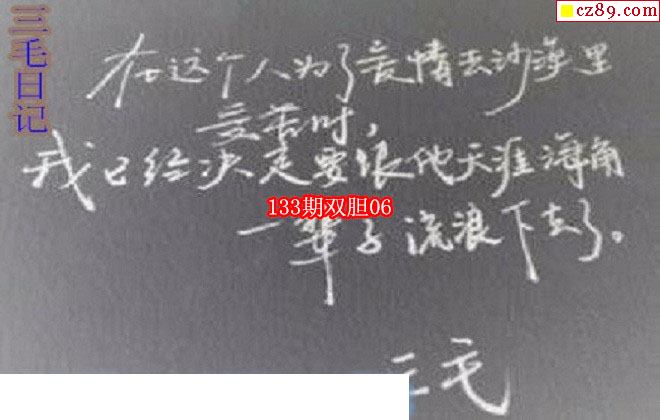 cz89.com
三毛日记
在这个人为了爱情去沙漠里
受苦时,
我已经决定要跟他天涯海角
133期双胆06
一辈子流浪下去了。
三毛